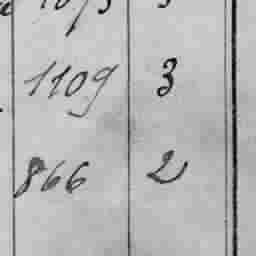 1109 3
866 2